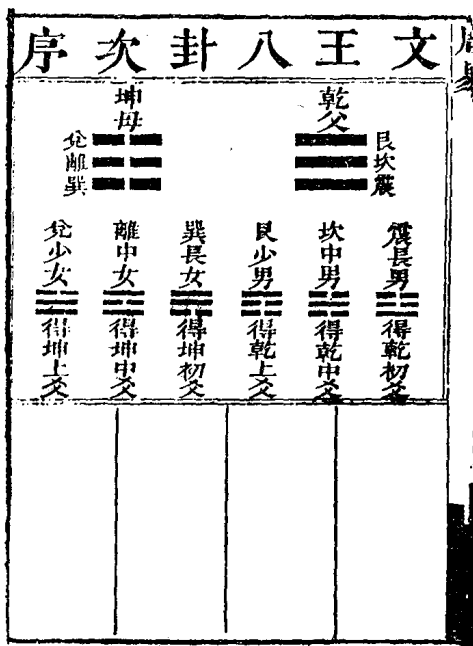 文王八卦次序
乾父
艮坎震
坤母
兌離巽
震長男
得乾初爻
坎中男
得乾中爻
艮少男
得乾上爻
巽長女
得坤初爻
離中女
得坤中爻
兌少女
得坤上爻